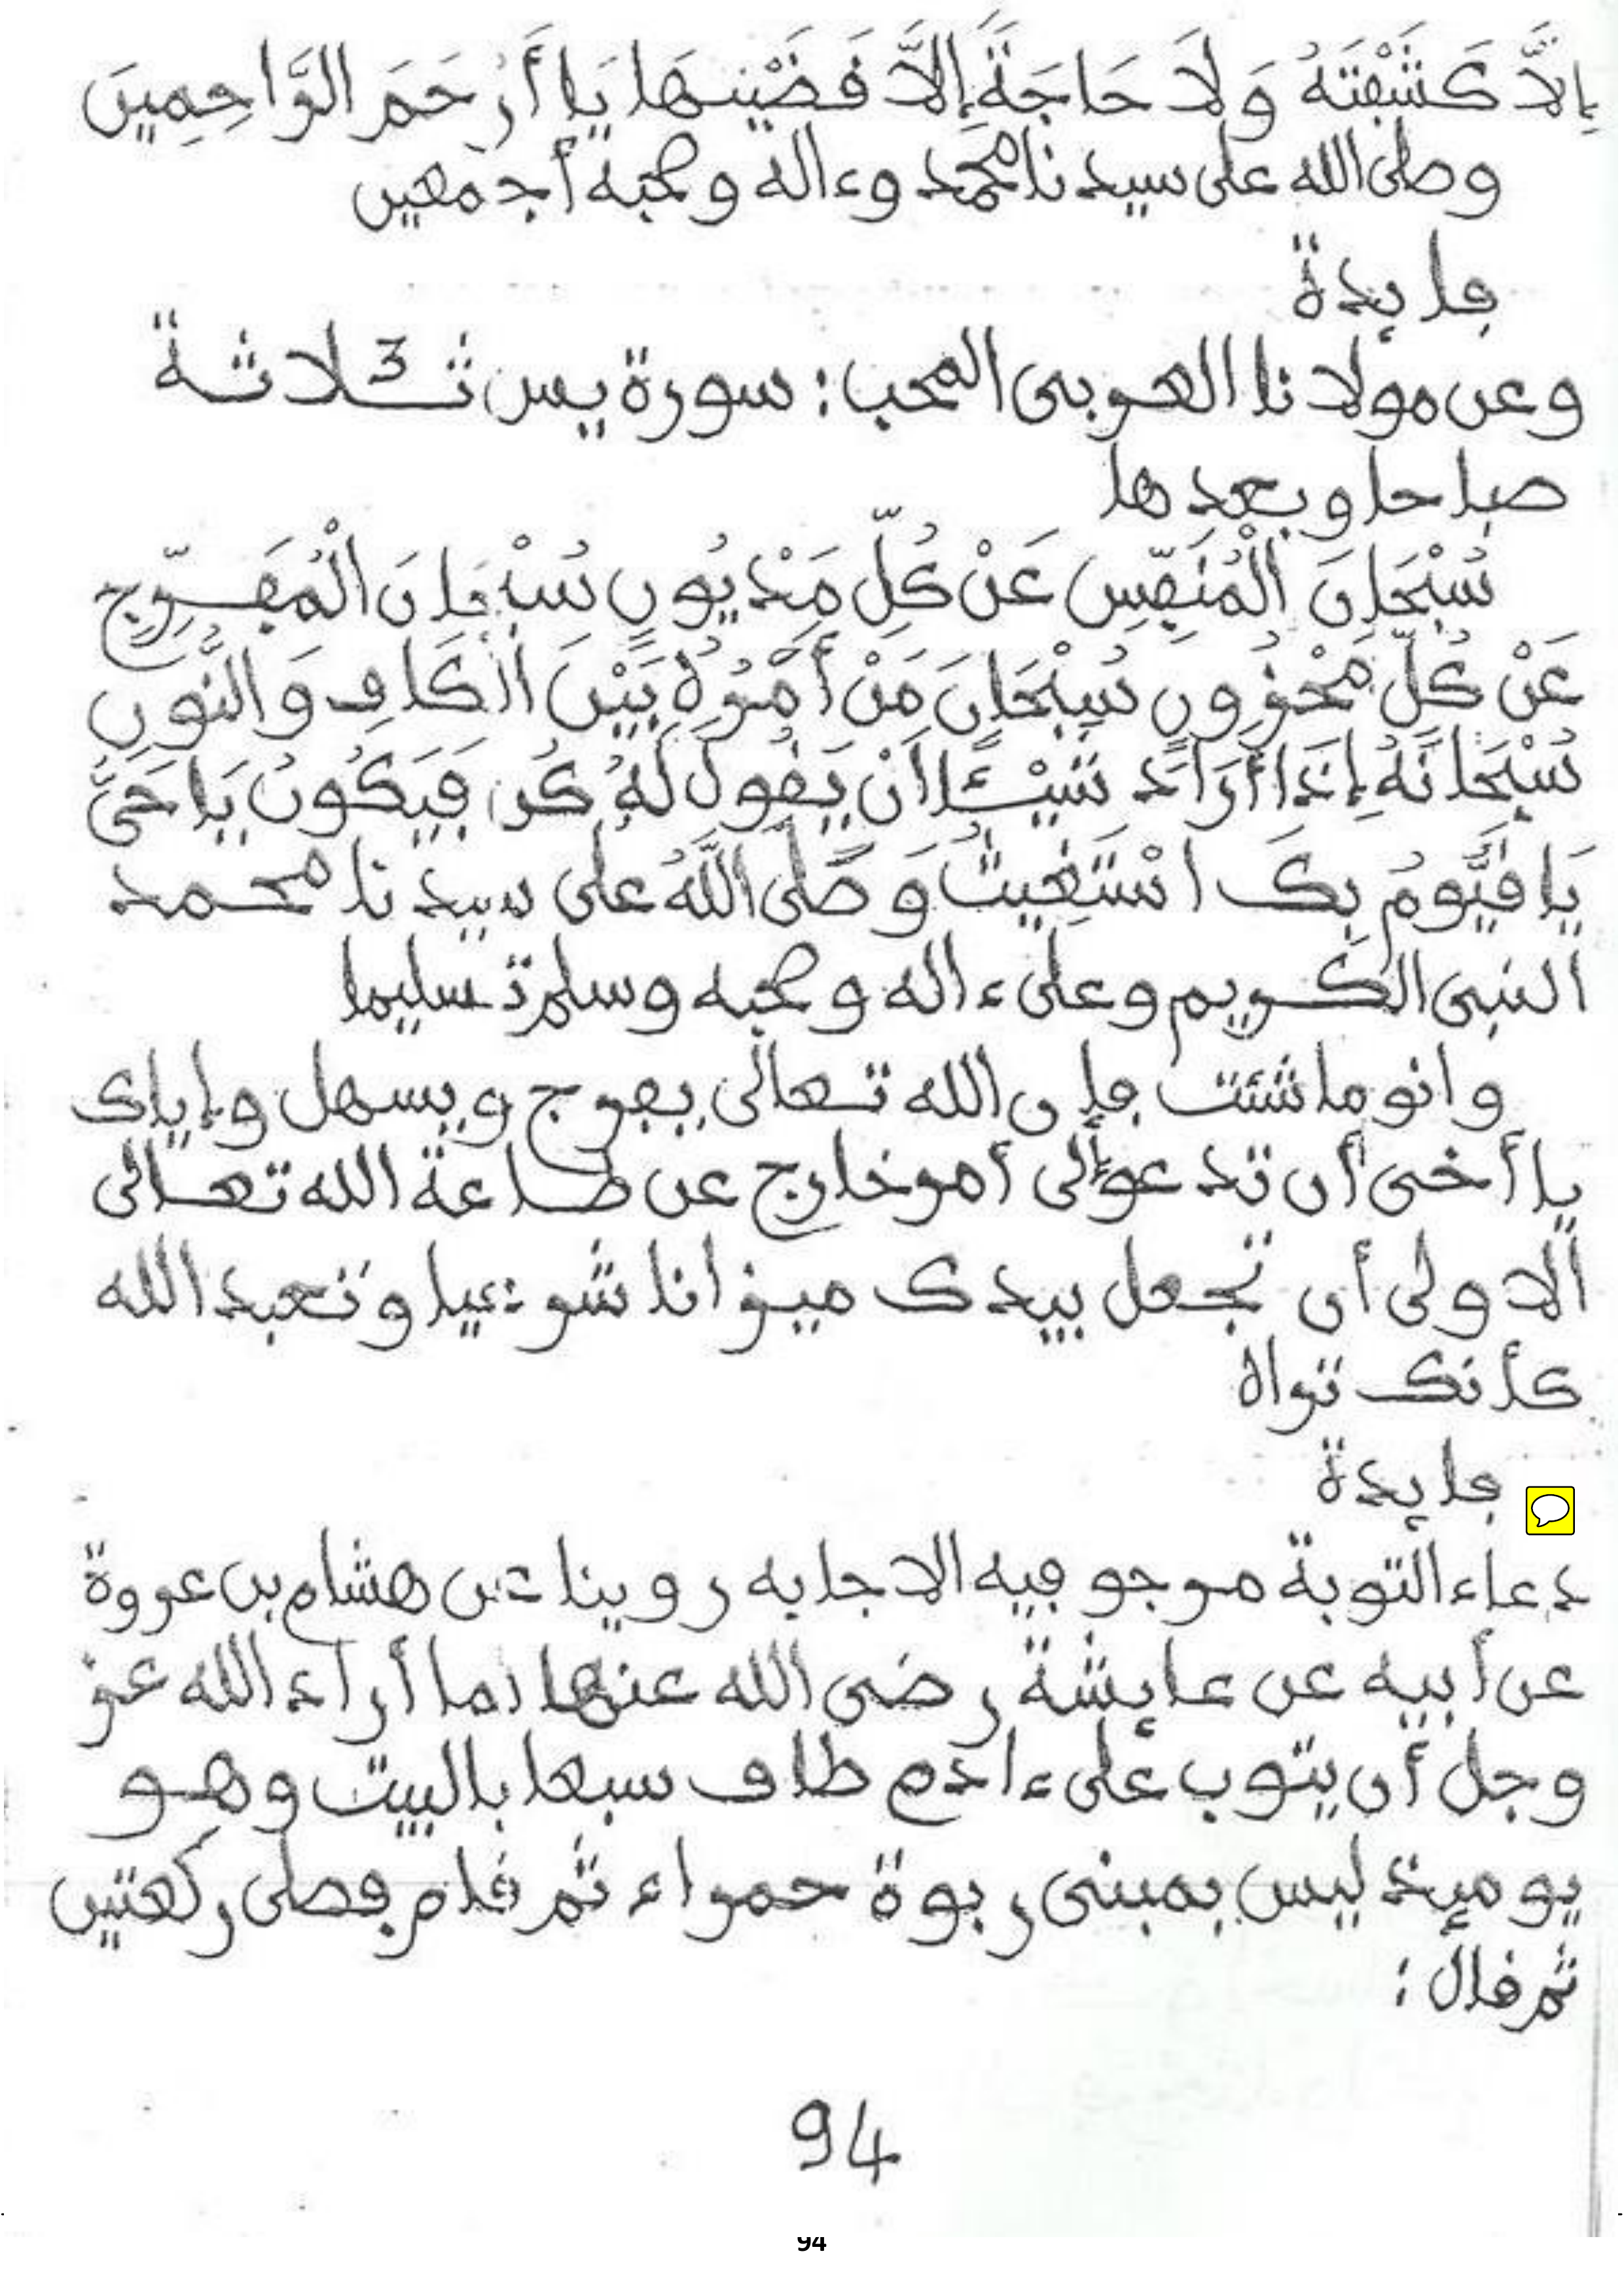 إِلاَّ كَشَفْتَهُ وَلاَ حَاجَةً إِلاَّ قَضَيْتَهَا يَا أَرْحَمَ الرَّاحِمِينَ
وصلى الله على سيدنا محمد وءاله وصحبه أجمعين
فايدة
وعن مولانا العربى المحب: سورة يس ثــ3ــلاثــة
صباحا وبعدها
سُبْحَانَ الْمُنَفِّسِ عَنْ كُلِّ مَدْيُونٍ سُبْحَانَ الْمُفَرِّجِ
عَنْ كُلِّ مَحْزُونٍ سُبْحَانَ مَنْ أَمْرُهُ بَيْنَ الْكَافِ وَالنُّونِ
سُبْحَانَهُ إِذَا أَرَادَ شَيْـئًا أَنْ يَقُولَ لَهُ كُن فَيَكُونُ يَا حَيُّ
يَا قَيُّومُ بِكَ اسْتَغِيثُ وَصَلَّى اللَّهُ على سيدنا محمد
النبى الكريم وعلى ءاله وصحبه وسلم تسليما
وانو ما شئت فإن الله تعالى يفرج ويسهل وإياك
يا أخى أن تدعو إلى أمر خارج عن طاعة الله تعالى
الاولى أن تجعل بيدك ميزانا شرعيا وتعبد الله
كأنك تراه
فايدة
دعاء التوبة مرجو فيه الاجابه روينا عن هشام بن عروة
عن أبيه عن عايشة رضى الله عنها لما أراد الله عز
وجل أن يتوب على ءادم طاف سبعا بالبيت وهو
يوميذ ليس بمبنى ربوة حمراء ثم قام فصلى ركعتين
ثم قال:
94
94